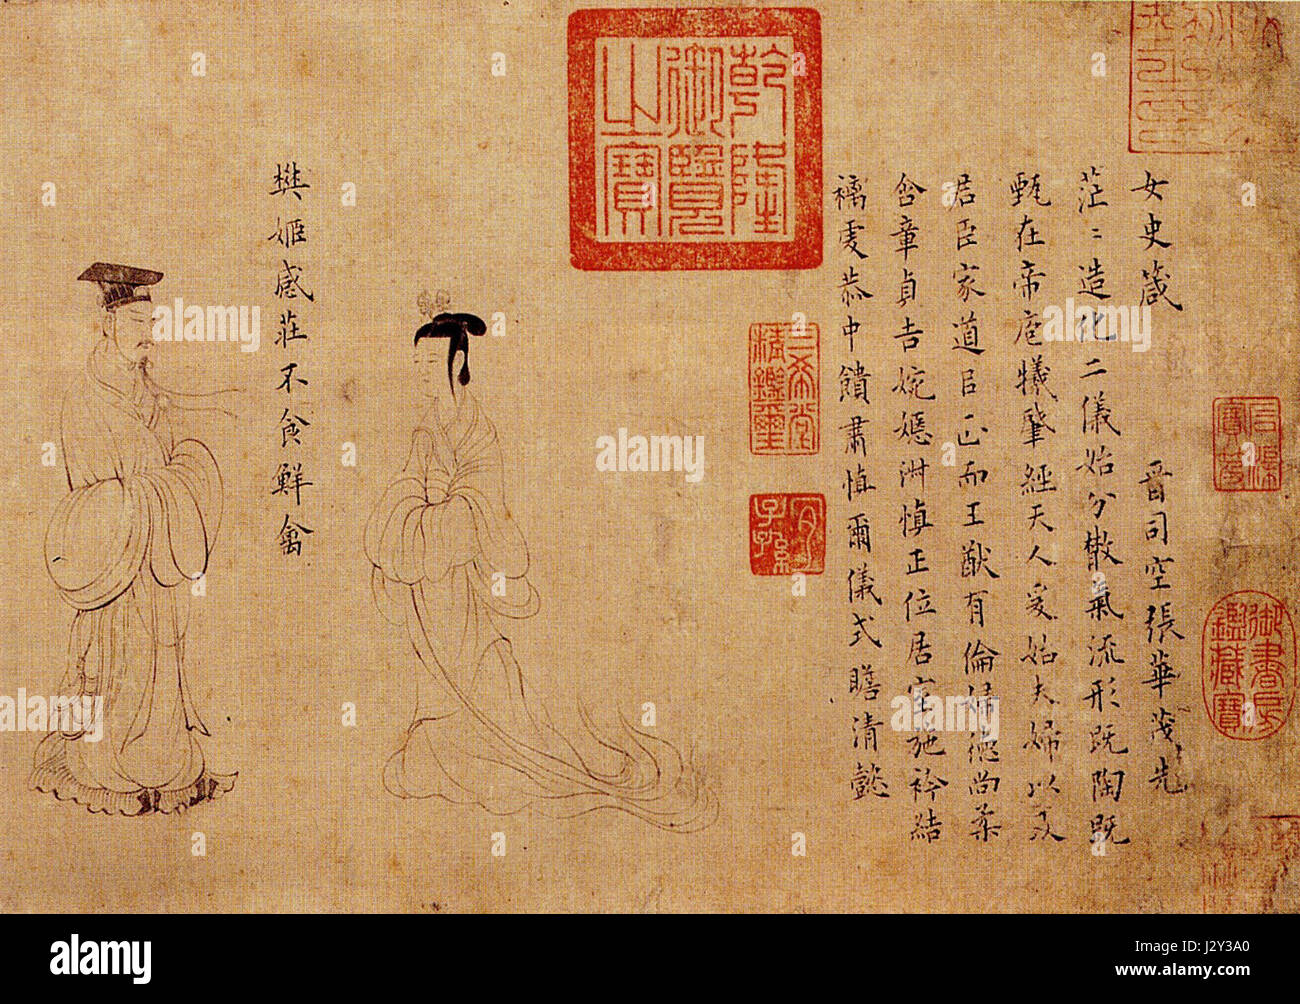 女史箴 晉司空張華茂先
茫〻造化二儀始分散氣流形既陶既
甄在帝庖犧肇經天人爰始夫婦以及
君臣家道㠯正而王猷有倫婦德尚柔
含章貞吉婉嫕淑慎正位居室施衿結
褵虔恭中饋肅慎爾儀式瞻清懿
樊姬感莊不食鮮禽
石渠寶笈
御書房鑑藏寶
乾隆御覽之寶
三希堂精鑑璽
宜子孫
alamy
alamy stock photo
Image ID: J2Y3A0
www.alamy.com